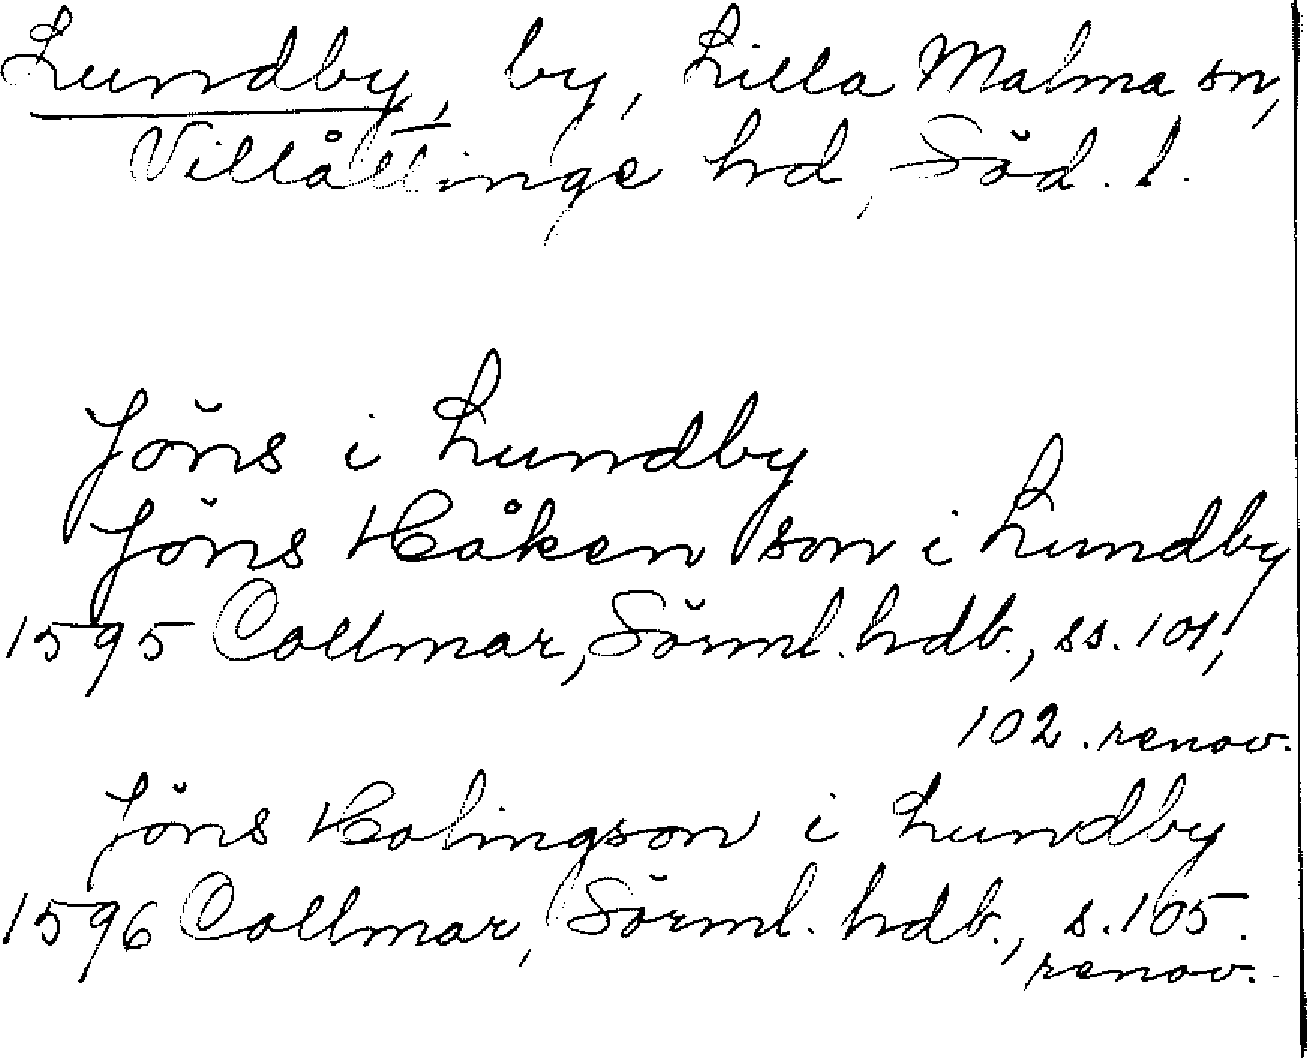 Lundby, by, Lilla Malma sn,
Villåttinge hd, Söd. l.
Jöns i Lundby
Jöns Håken son i Lundby
1595 Collmar, Sörml. hdb., ss. 101,
102. renov.
Jöns Holingson i Lundby
1596 Collmar, Sörml. hdb., s. 105.
renov.